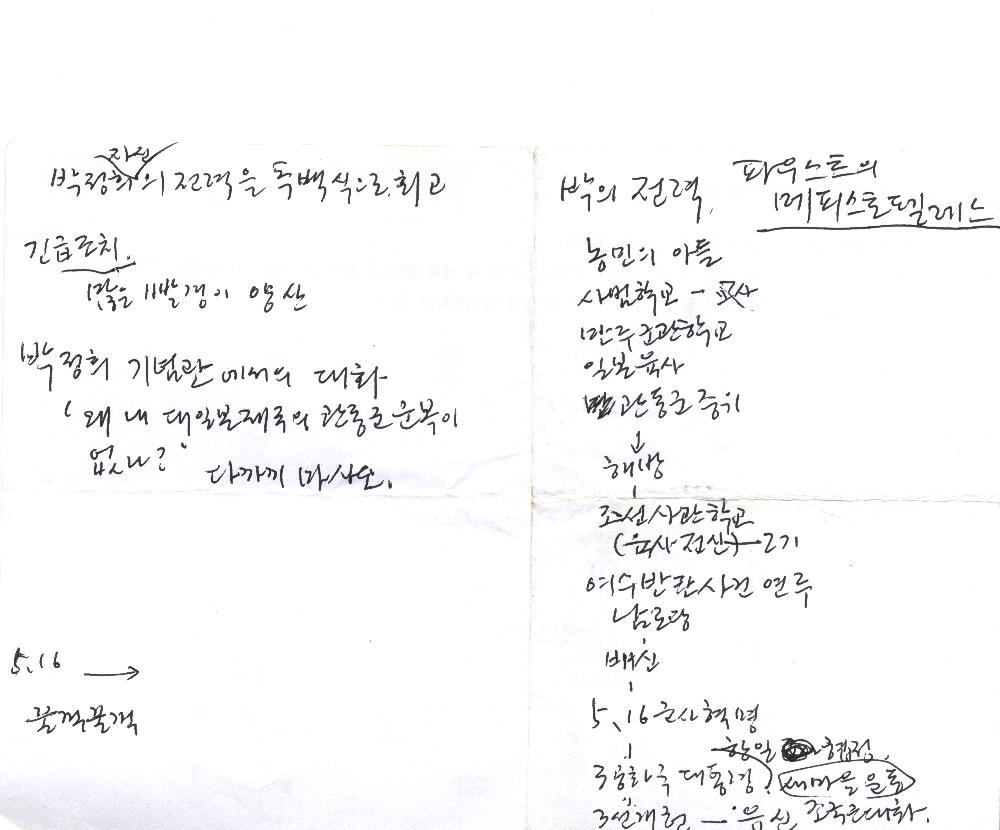 자신
박정희의 전력을 독백식으로 회고
긴급조치.
많은 빨갱이 양산
박정희 기념관에서의 대화
"왜 내 대일본제국의 관동군 군복이
없나?"
다까끼 마사오.
5.16 →
꿀꺽꿀꺽
박의 전력.
파우스트의
메피스토펠레스
농민의 아들
사범학교 - 교사
만주군관학교
일본육사
관동군 중위
↓
해방
조선사관학교
(육사 전신) - 2기
여수반란사건 연루
남로당
배신
5.16 군사혁명
한일 협정.
3공화국 대통령. 새마을 운동
3선개헌 - 유신 조국근대화.